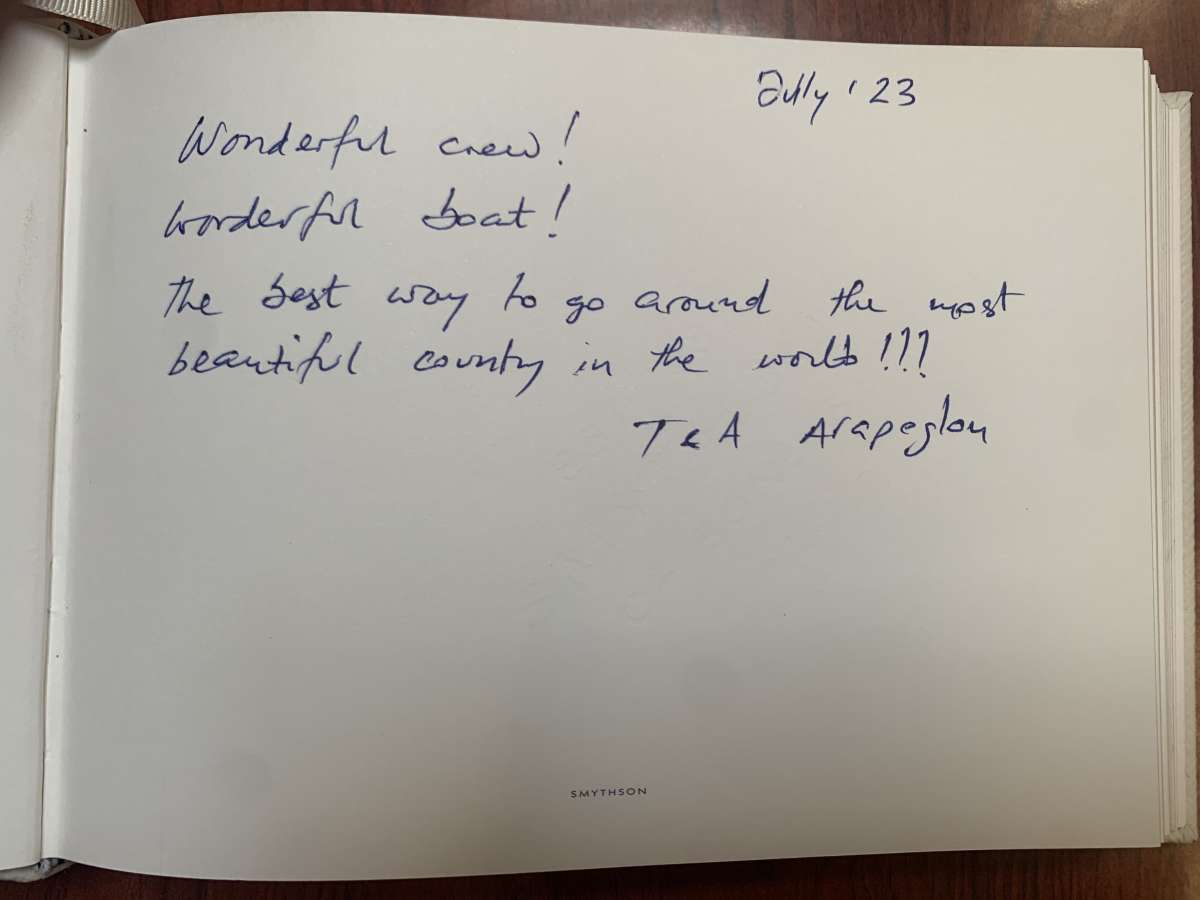 July '23
Wonderful crew!
Wonderful boat!
The best way to go around the most
beautiful country in the world!!!
T & A Arapoglou
SMYTHSON